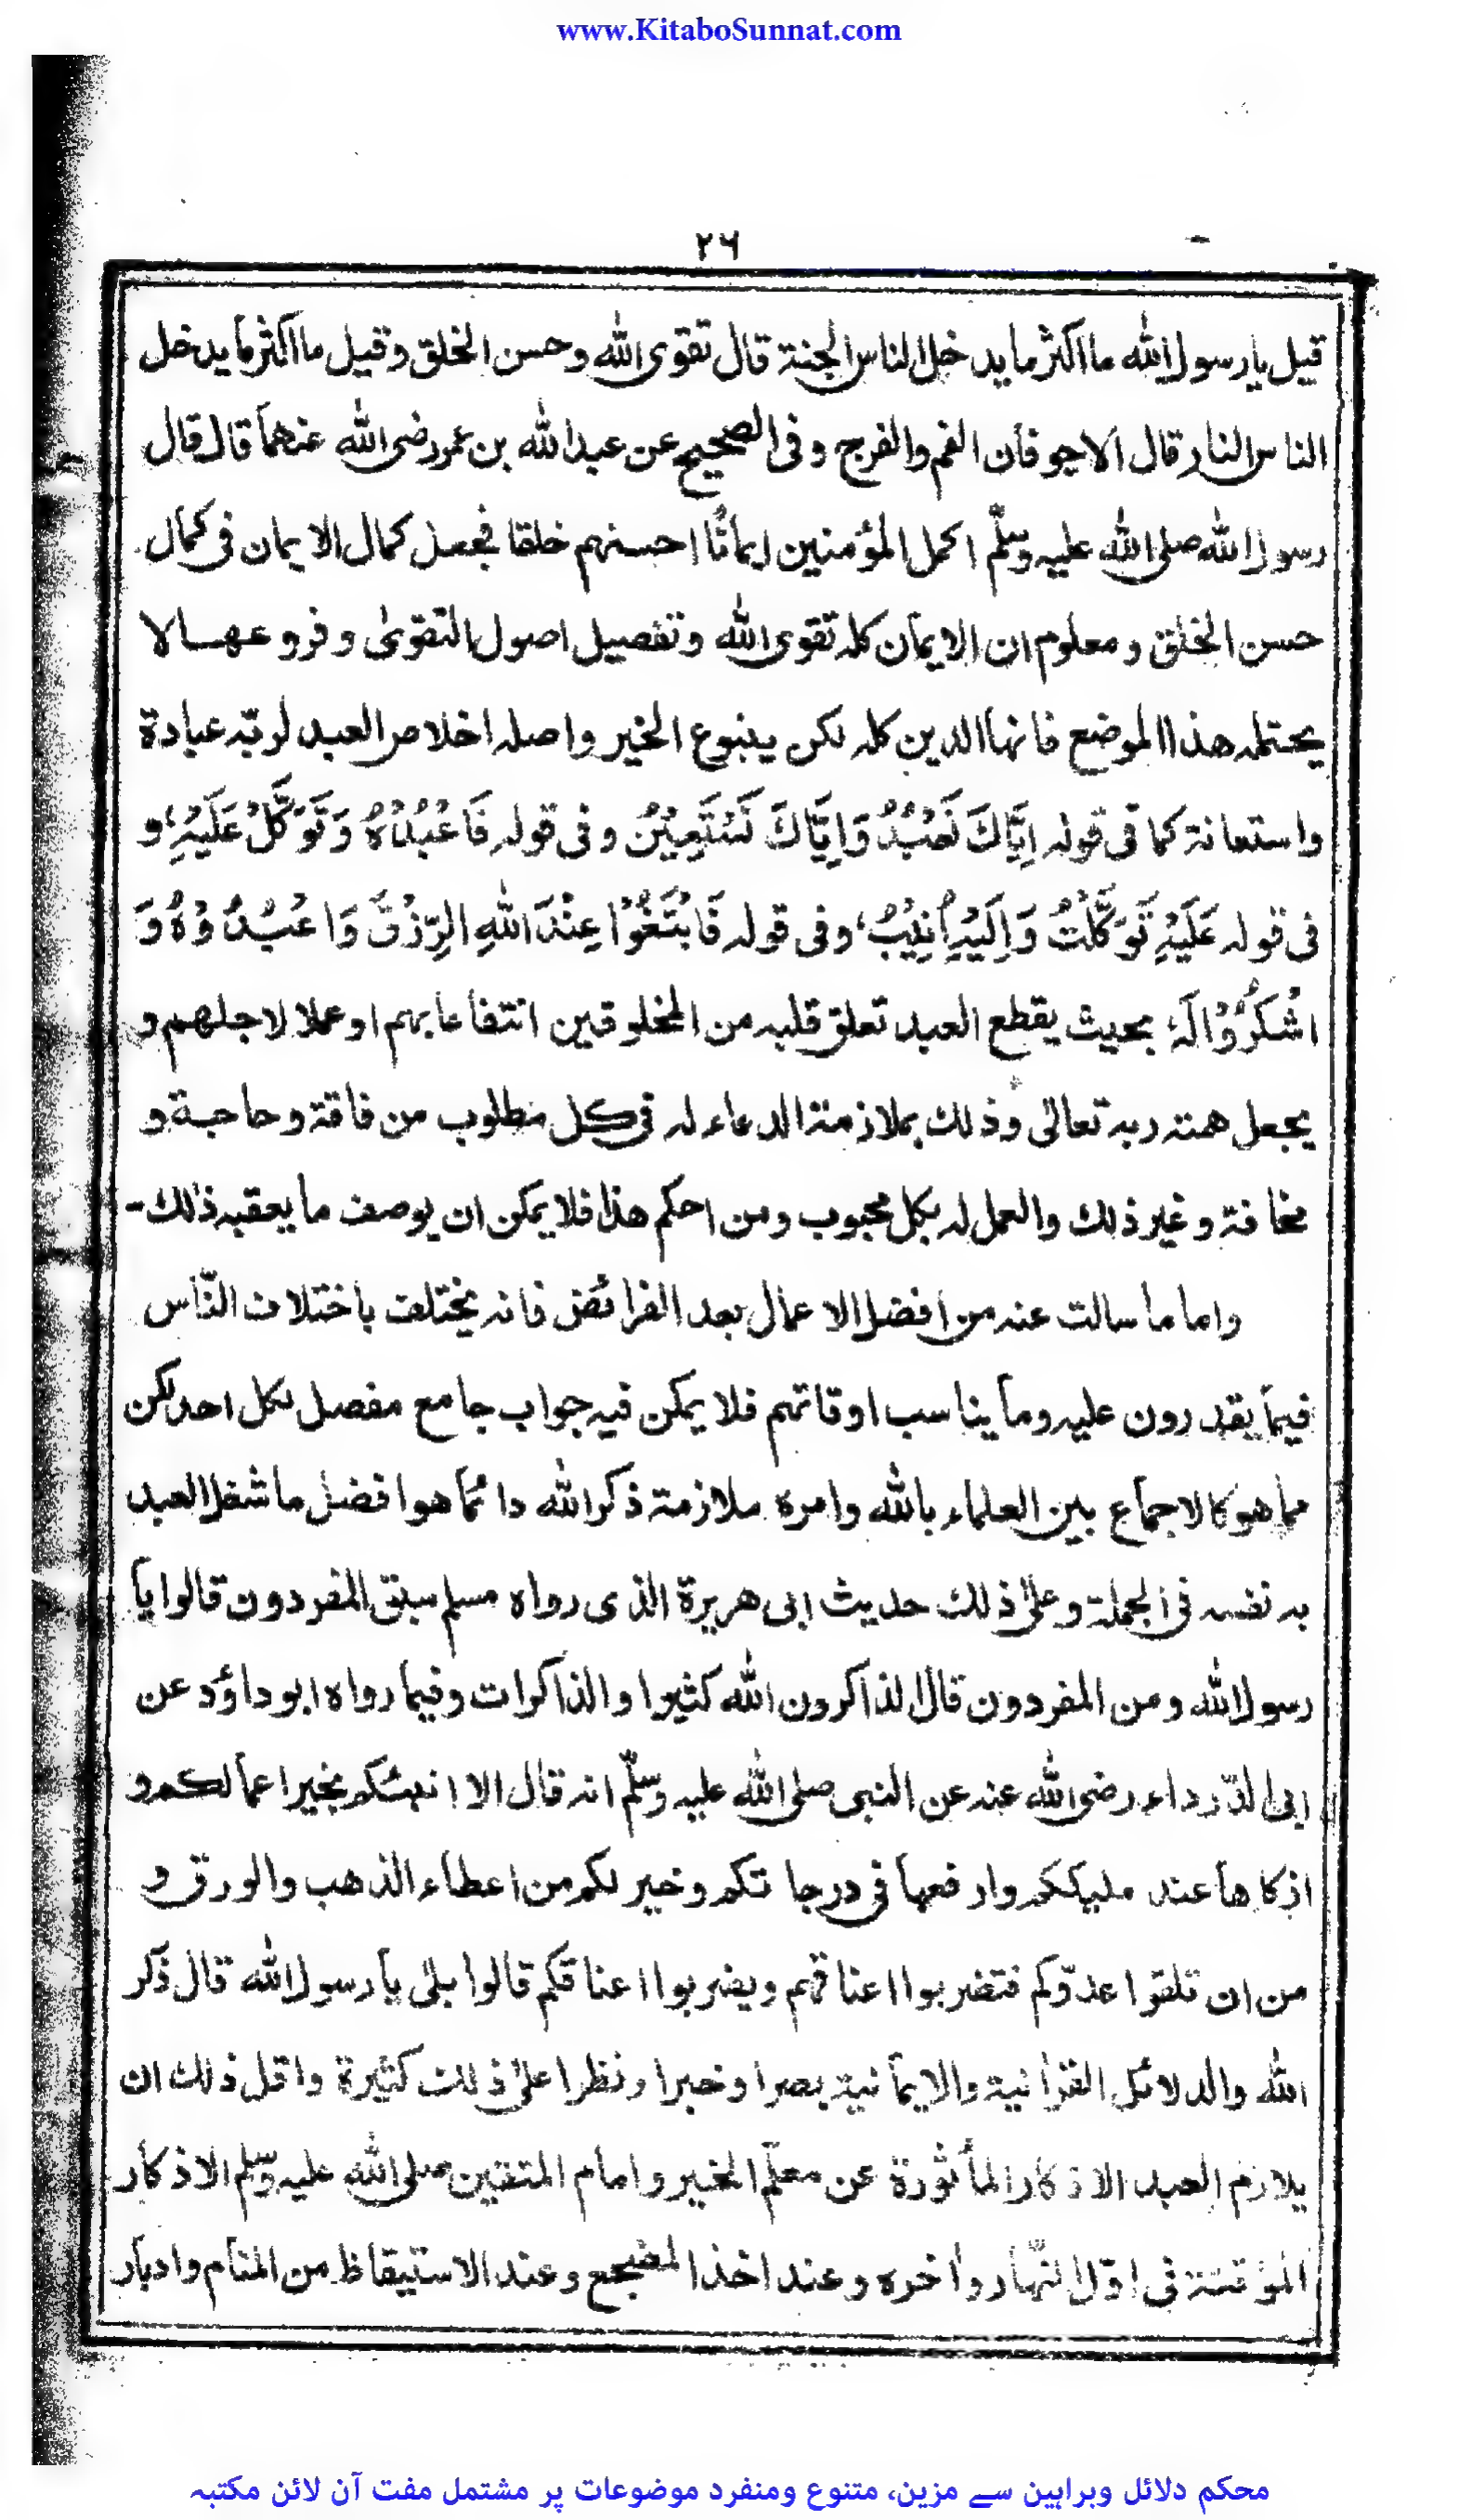 www.KitaboSunnat.com
۲۶
قیل یا رسول الله ما اکثر ما یدخل الناس الجنة قال تقوی الله وحسن الخلق وقیل ما اکثر ما یدخل
الناس النار قال الاجوفان الفم والفرج وفی الصحیح عن عبدالله بن عمر رضی الله عنهما قال قال
رسول الله صلی الله علیہ وسلّم اکمل المؤمنین ایمانًا احسنہم خلقا فجعل کمال الایمان فی کمال
حسن الخلق ومعلوم ان الایمان کلہ تقوی الله وتفصیل اصول التقویٰ وفروعھا لا
یحتملہ ھذا الموضع فانہا الدین کلہ لکن ینبوع الخیر واصلہ اخلاص العبد لربّہ عبادة
واستعانة کما فی قولہ اِیَّاكَ نَعْبُدُ وَاِیَّاكَ نَسْتَعِیْنُ وفی قولہ فَاعْبُدْهُ وَتَوَکَّلْ عَلَیْہِ، و
فی قولہ عَلَیْہِ تَوَکَّلْتُ وَاِلَیْہِ اُنِیْبُ، وفی قولہ فَابْتَغُوْا عِنْدَ اللهِ الرِّزْقَ وَاعْبُدُوْهُ وَ
اشْکُرُوْا لَہٗ بحیث یقطع العبد تعلق قلبہ من المخلوقین انتفاعا بہم او عملا لاجلھم و
یجعل ھمتہ ربہ تعالی وذلك بملازمة الدعاء لہ فی کل مطلوب من فاقة وحاجة و
مخافة وغیر ذلك والعمل لہ بکل محبوب ومن احکم ھذا فلا یمکن ان یوصف ما یعقبہ ذلك۔
واما ما سالت عنہ من افضل الاعمال بعد الفرائض فانہ یختلف باختلاف النّاس
فیما یقدرون علیہ وما یناسب اوقاتہم فلا یمکن فیہ جواب جامع مفصل لکل احد لکن
مما ھو کالاجماع بین العلماء بالله وامره ملازمة ذکر الله دائما ھو افضل ما شغل العبد
بہ نفسہ فی الجملة وعلیٰ ذلك حدیث ابی ھریرة الذی رواه مسلم سبق المفردون قالوا یا
رسول الله ومن المفردون قال الذاکرون الله کثیرا والذاکرات وفیما رواه ابوداؤد عن
ابی الدّرداء رضی الله عنہ عن النبی صلی الله علیہ وسلّم انہ قال الا انبئکم بخیر اعمالکم و
ازکاھا عند ملیککم وارفعہا فی درجاتکم وخیر لکم من اعطاء الذھب والورق و
من ان تلقوا عدوّکم فتضربوا اعناقہم ویضربوا اعناقکم قالوا بلیٰ یا رسول الله قال ذکر
الله والدلائل القرانیة والایمانیة بصرا وخبرا ونظرا علیٰ ذلك کثیرة واقل ذلك ان
یلازم العبد الاذکار الماثورة عن معلّم الخیر وامام المتقین صلی الله علیہ وسلّم الاذکار
المؤقتة فی اوّل النّہار واٰخره وعند اخذ المضجع وعند الاستیقاظ من المنام وادبار
محکم دلائل وبراہین سے مزین، متنوع ومنفرد موضوعات پر مشتمل مفت آن لائن مکتبہ